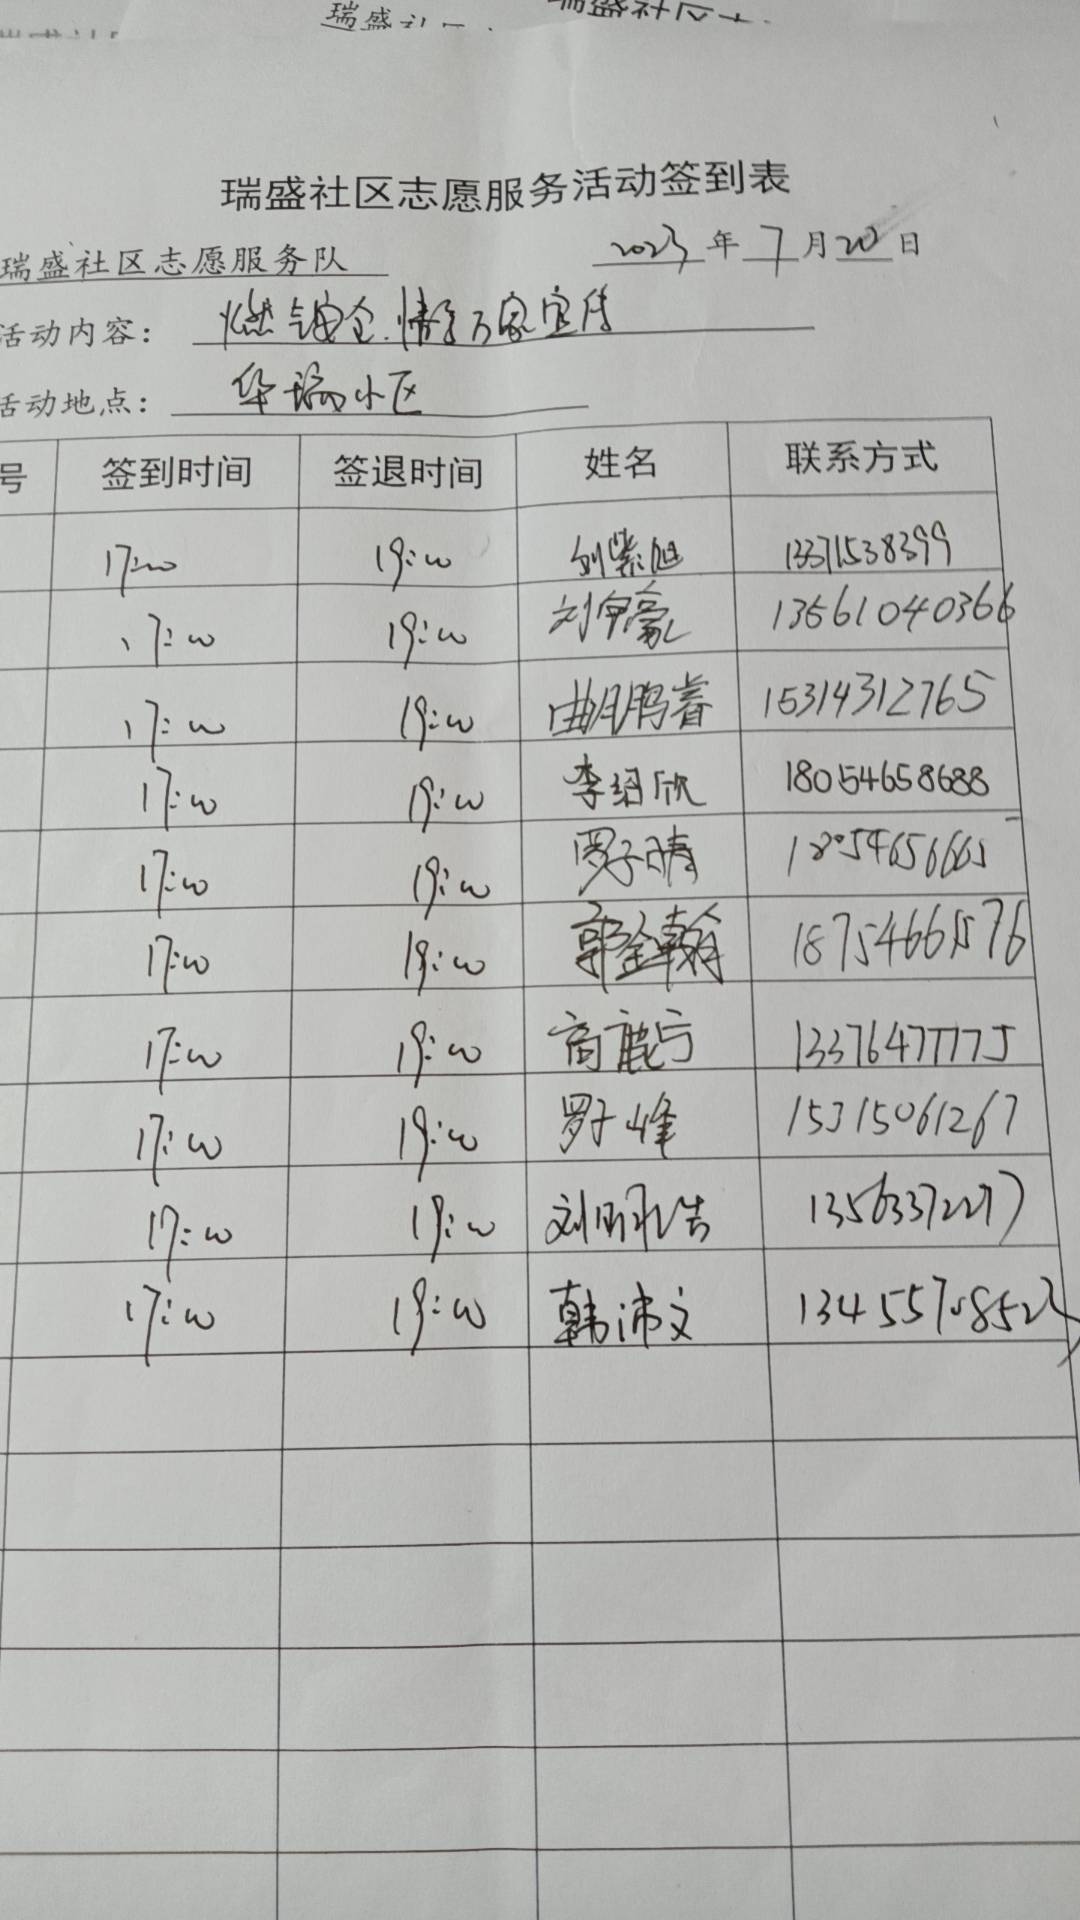 瑞盛社区志愿服务活动签到表
瑞盛社区志愿服务队 2023年7月20日
活动内容： 燃气安全.情系万家宣传
活动地点： 华瑞小区
号 签到时间 签退时间 姓名 联系方式
17:00 19:00 刘紫旭 13371538399
17:00 19:00 刘宇豪 13561040366
17:00 19:00 曲鹏睿 15314312765
17:00 19:00 李绍欣 18054658688
17:00 19:00 罗子晴 18054656665
17:00 19:00 郭金翰 18754665576
17:00 19:00 高鹿宁 13376477775
17:00 19:00 罗子峰 15315061267
17:00 19:00 刘明浩 13563372277
17:00 19:00 韩沛文 13455708523